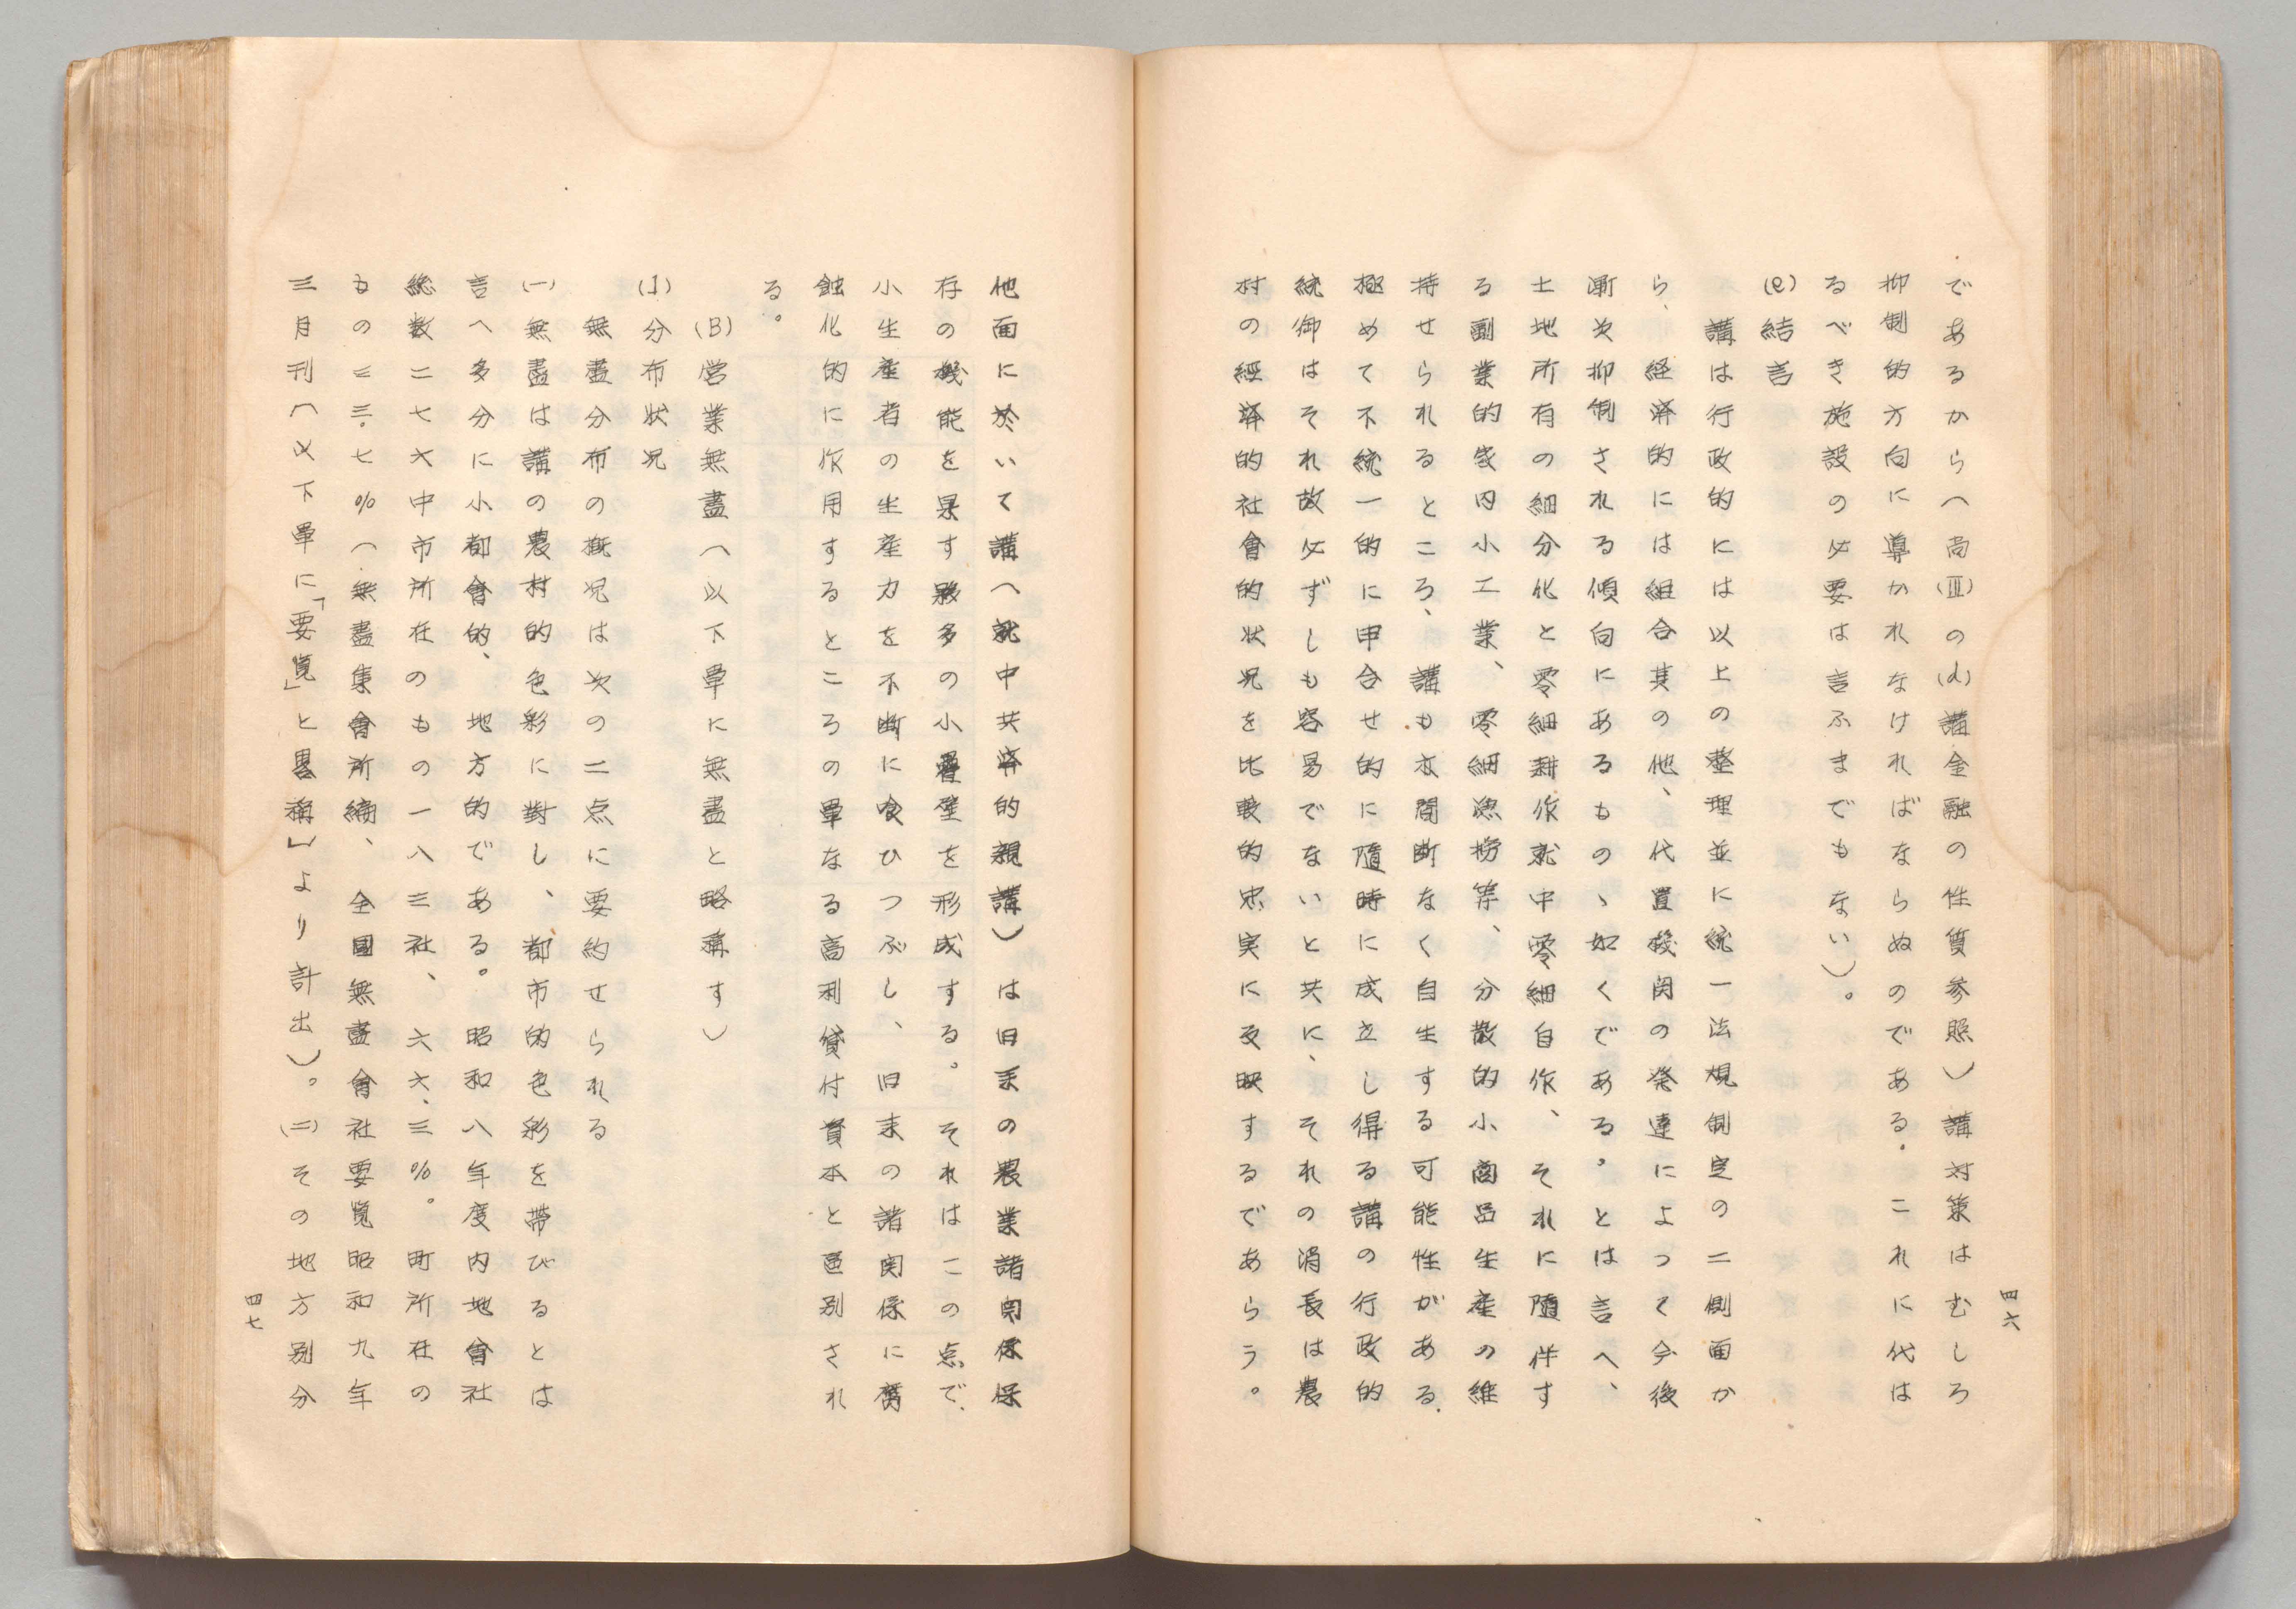 四六
であるから(尚(Ⅲ)の(d)講金融の性質参照)講対策はむしろ
抑制的方向に導かれなければならぬのである。これに代は
るべき施設の必要は言ふまでもない)。
(e)結言
講は行政的には以上の整理並に統一法規制定の二側面か
ら、経済的には組合其の他、代置機関の発達によつて今後
漸次抑制される傾向にあるものゝ如くである。とは言へ、
土地所有の細分化と零細耕作就中零細自作、それに随伴す
る副業的家内小工業、零細漁撈等、分散的小商品生産の維
持せられるところ、講も亦間断なく自生する可能性がある。
極めて不統一的に申合せ的に随時に成立し得る講の行政的
統御はそれ故必ずしも容易でないと共に、それの消長は農
村の経済的社會的状況を比較的忠実に反映するであらう。
他面に於いて講(就中共済的親講)は旧来の農業諸関係保
存の機能を果す夥多の小壁を形成する。それはこの点で、
小生産者の生産力を不断に食ひつぶし、旧来の諸関係に腐
蝕化的に作用するところの単なる高利貸付資本と区別され
る。
(B)営業無盡(以下単に無盡と略稱す)
(1)分布状況
無盡分布の概況は次の二点に要約せられる
(一)無盡は講の農村的色彩に對し、都市的色彩を帯びるとは
言へ多分に小都會的、地方的である。昭和八年度内地會社
総数二七六中市所在のもの一八三社、六六、三%。町所在の
もの三三.七%(無盡集會所編、全國無盡會社要覧昭和九年
三月刊(以下単に「要覧」と畧稱)より計出)。(二)その地方別分
四七